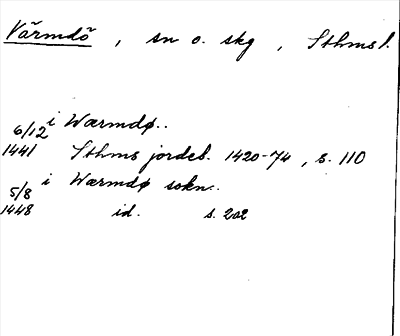 Värmdö, sn o. skg, Sthms l.
6/12 i Wærmdø..
1441 Sthms jordeb. 1420-74, s. 110
5/8 i Wærmdø sokn..
1448 id. s. 202